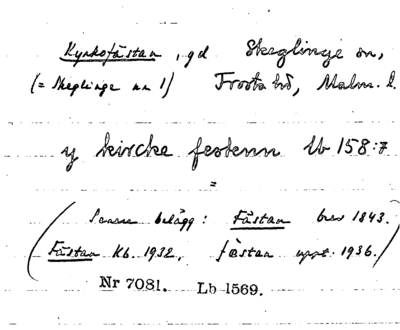 Kyrkofästan, gd Skeglinge sn,
(= Skeglinge nr 1) Frosta hd, Malm. l.
y kircke festenn Lb 158:7
=
(Senare belägg: Fästan brev 1843.
Fästan Kb. 1932. fästan uppt. 1936.)
Nr 7081. Lb 1569.